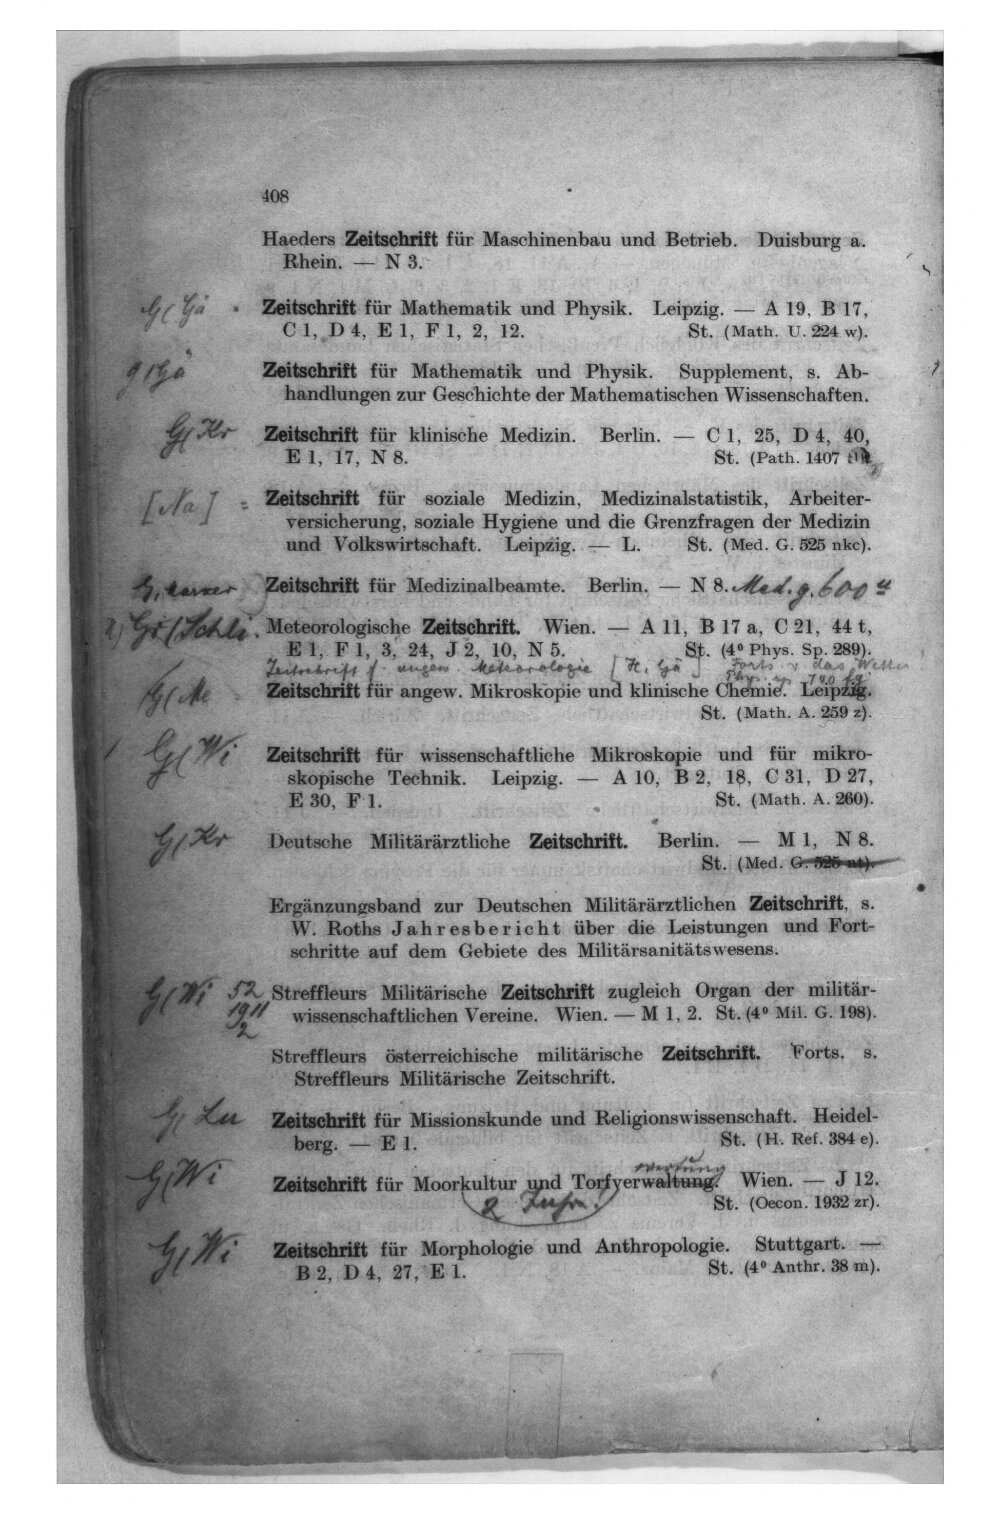 408
Haeders Zeitschrift für Maschinenbau und Betrieb. Duisburg a.
Rhein. — N 3.
G/Gä
Zeitschrift für Mathematik und Physik. Leipzig. — A 19, B 17,
C 1, D 4, E 1, F 1, 2, 12. St. (Math. U. 224 w).
g/Gä
Zeitschrift für Mathematik und Physik. Supplement, s. Ab-
handlungen zur Geschichte der Mathematischen Wissenschaften.
G/Kr
Zeitschrift für klinische Medizin. Berlin. — C 1, 25, D 4, 40,
E 1, 17, N 8. St. (Path. 1407
[Na] =
Zeitschrift für soziale Medizin, Medizinalstatistik, Arbeiter-
versicherung, soziale Hygiene und die Grenzfragen der Medizin
und Volkswirtschaft. Leipzig. — L. St. (Med. G. 525 nkc).
Zeitschrift für Medizinalbeamte. Berlin. — N 8. Med. g. 600
Gr/Schli.
Meteorologische Zeitschrift. Wien. — A 11, B 17 a, C 21, 44 t,
E 1, F 1, 3, 24, J 2, 10, N 5. St. (4⁰ Phys. Sp. 289).
Zeitschrift f. angew. Meteorologie [H. Gä] Forts. v. das Wetter
Phys. sp. 140
G/Me
Zeitschrift für angew. Mikroskopie und klinische Chemie. Leipzig.
St. (Math. A. 259 z).
G/Wi
Zeitschrift für wissenschaftliche Mikroskopie und für mikro-
skopische Technik. Leipzig. — A 10, B 2, 18, C 31, D 27,
E 30, F 1. St. (Math. A. 260).
G/Kr
Deutsche Militärärztliche Zeitschrift. Berlin. — M 1, N 8.
St. (Med. G. 525 nt).
Ergänzungsband zur Deutschen Militärärztlichen Zeitschrift, s.
W. Roths Jahresbericht über die Leistungen und Fort-
schritte auf dem Gebiete des Militärsanitätswesens.
G/Wi 52
1911
2
Streffleurs Militärische Zeitschrift zugleich Organ der militär-
wissenschaftlichen Vereine. Wien. — M 1, 2. St. (4⁰ Mil. G. 198).
Streffleurs österreichische militärische Zeitschrift. Forts. s.
Streffleurs Militärische Zeitschrift.
G/Lu
Zeitschrift für Missionskunde und Religionswissenschaft. Heidel-
berg. — E 1. St. (H. Ref. 384 e).
G/Wi
wertung
Zeitschrift für Moorkultur und Torfverwaltung. Wien. — J 12.
St. (Oecon. 1932 zr).
G/Wi
Zeitschrift für Morphologie und Anthropologie. Stuttgart. —
B 2, D 4, 27, E 1. St. (4⁰ Anthr. 38 m).